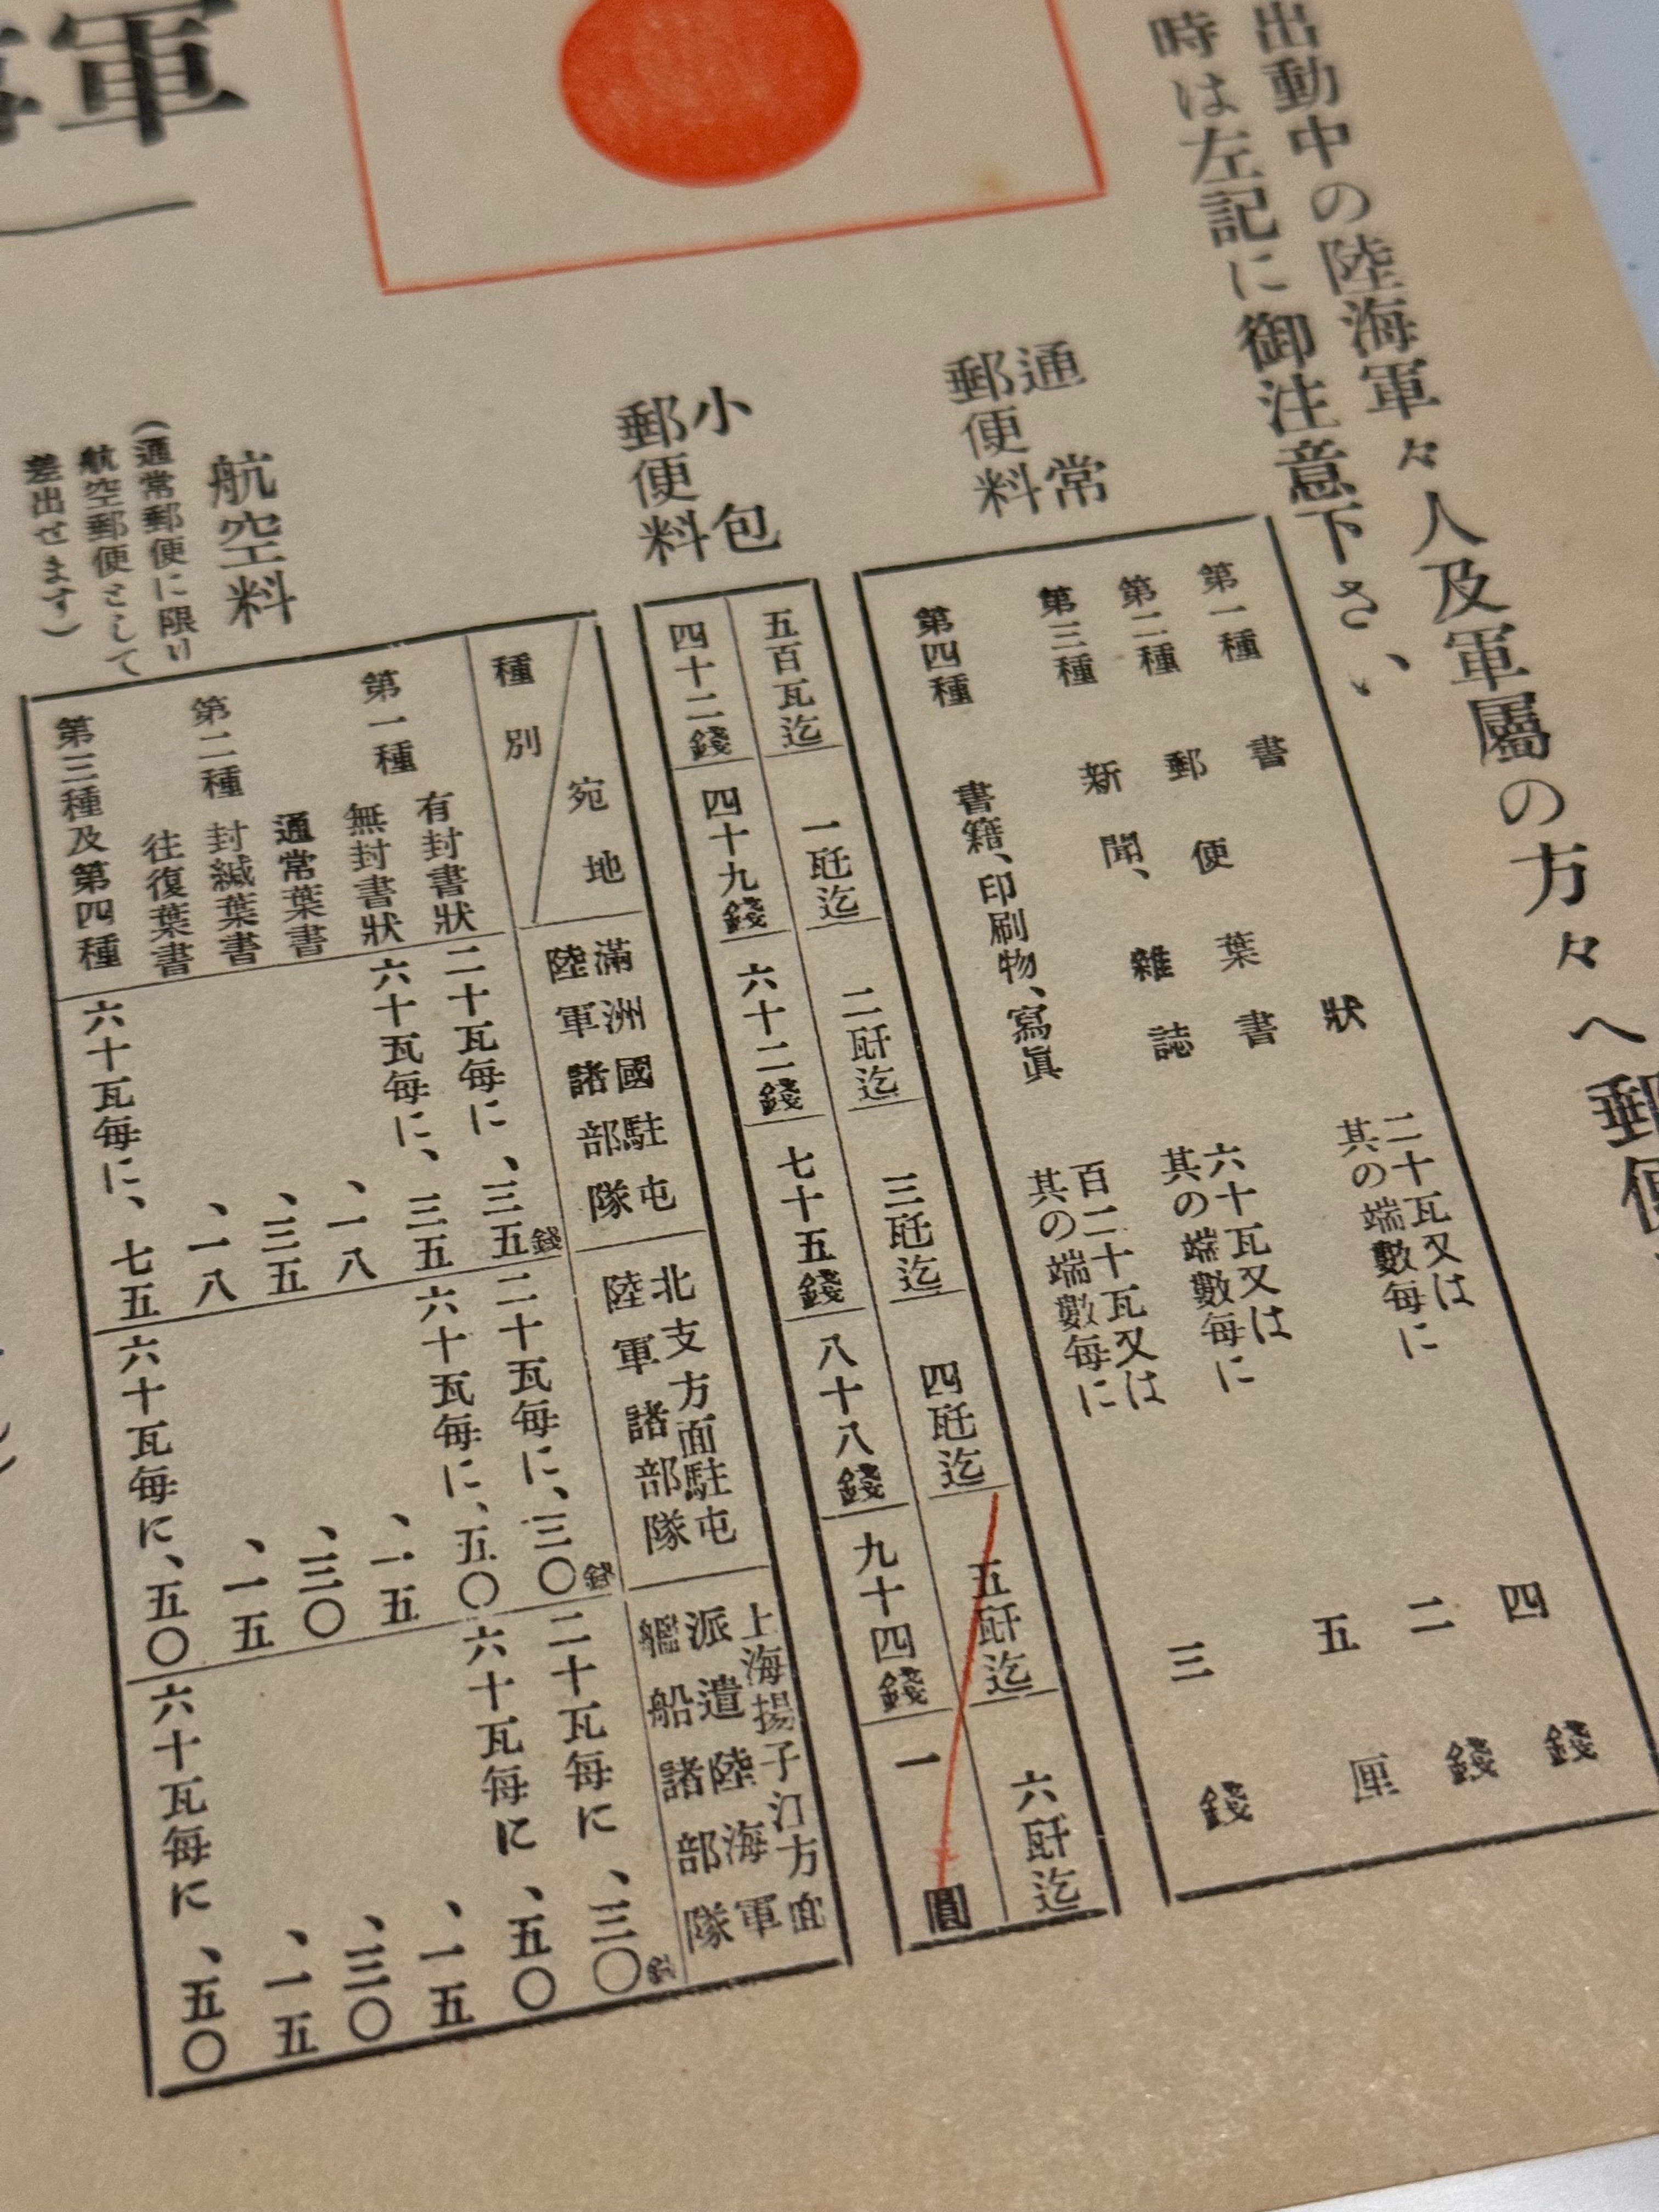 出動中の陸海軍々人及軍屬の方々へ郵便
時は左記に御注意下さい、
軍
通常
郵便料
第一種 書狀 二十瓦又は其の端數每に 四錢
第二種 郵便葉書 二錢
第三種 新聞、雜誌 六十瓦又は其の端數每に 五厘
第四種 書籍、印刷物、寫眞 百二十瓦又は其の端數每に 三錢
小包
郵便料
五百瓦迄 一瓩迄 二瓩迄 三瓩迄 四瓩迄 五瓩迄 六瓩迄
四十二錢 四十九錢 六十二錢 七十五錢 八十八錢 九十四錢 一圓
航空料
(通常郵便に限り
航空郵便として
差出せます)
宛地
種別
滿洲國駐屯
陸軍諸部隊
北支方面駐屯
陸軍諸部隊
上海揚子江方面
派遣陸海軍
艦船諸部隊
第一種 有封書狀 二十瓦每に、三五錢 二十瓦每に、三〇錢 二十瓦每に、三〇錢
無封書狀 六十瓦每に、三五 六十瓦每に、五〇 六十瓦每に、五〇
第二種 通常葉書 、一八 、一五 、一五
封緘葉書 、三五 、三〇 、三〇
往復葉書 、一八 、一五 、一五
第三種及第四種 六十瓦每に、七五 六十瓦每に、五〇 六十瓦每に、五〇